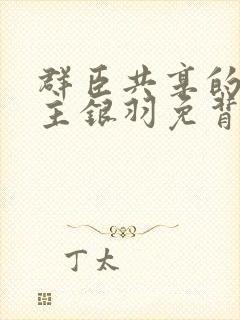 群臣共享的
主银羽免背
丁太